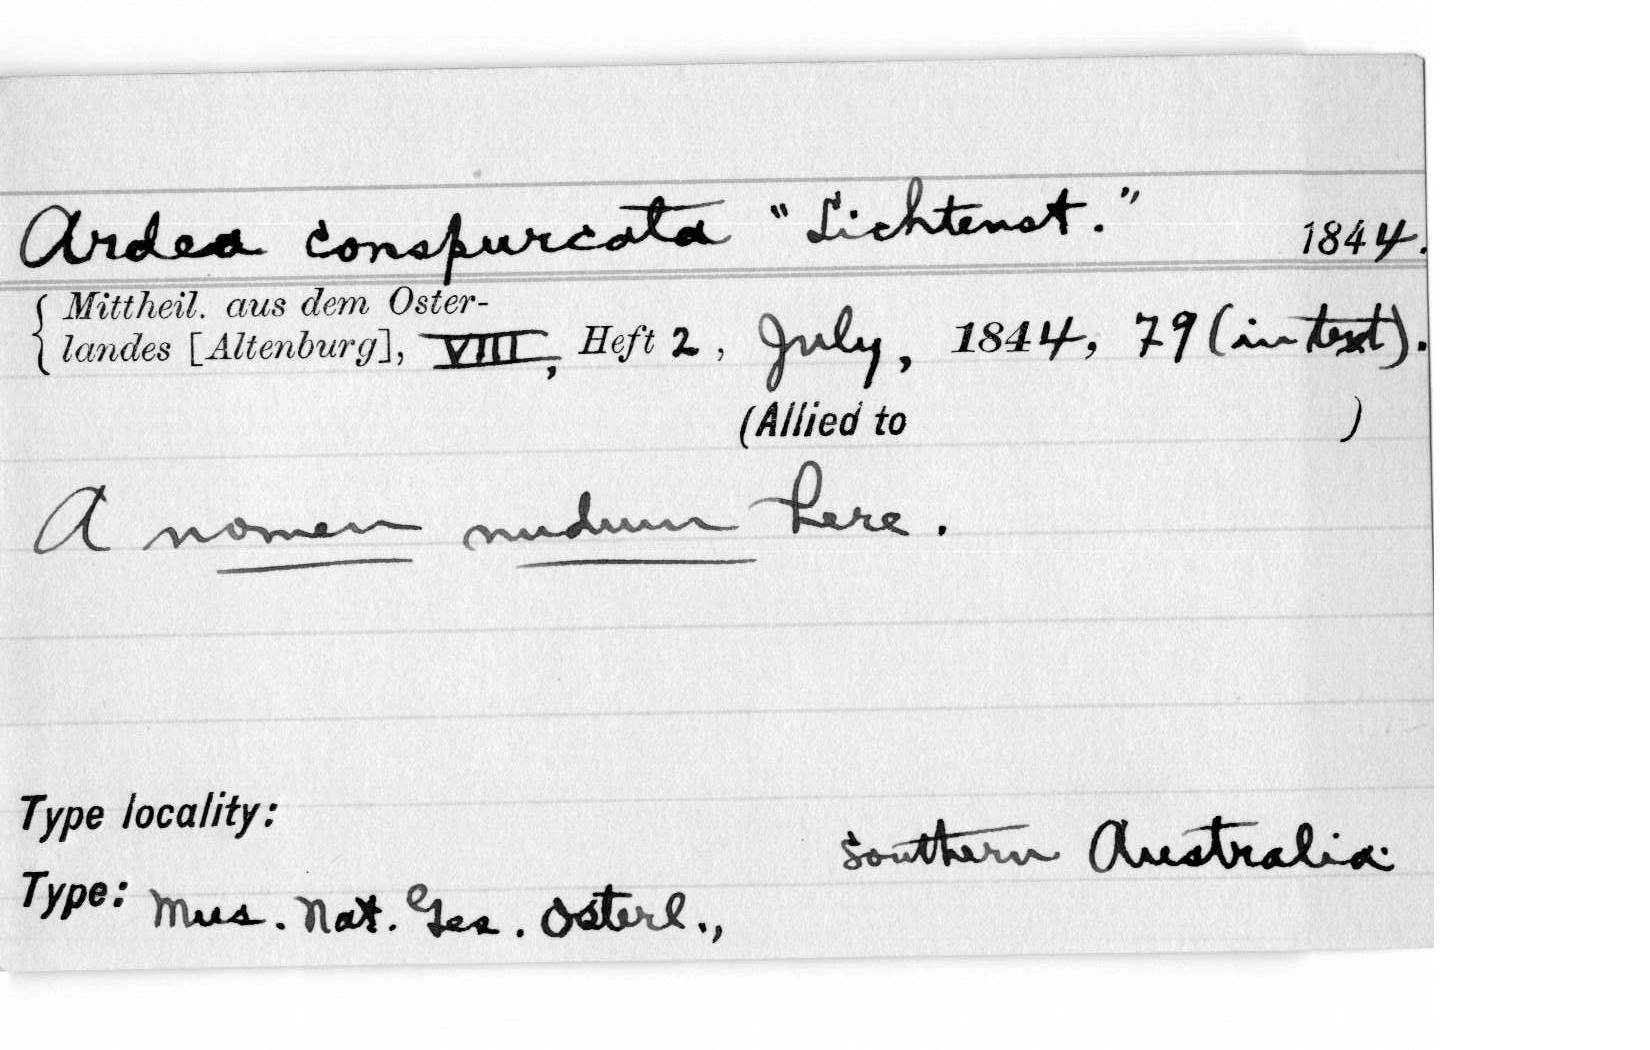 Ardea conspurcata "Lichtenst." 1844.
Mittheil. aus dem Oster-
landes [Altenburg], VIII, Heft 2, July, 1844, 79 (in text).
(Allied to )
A nomen nudum here.
Type locality:
Southern Australia.
Type: Mus. Nat. Ges. Osterl.,